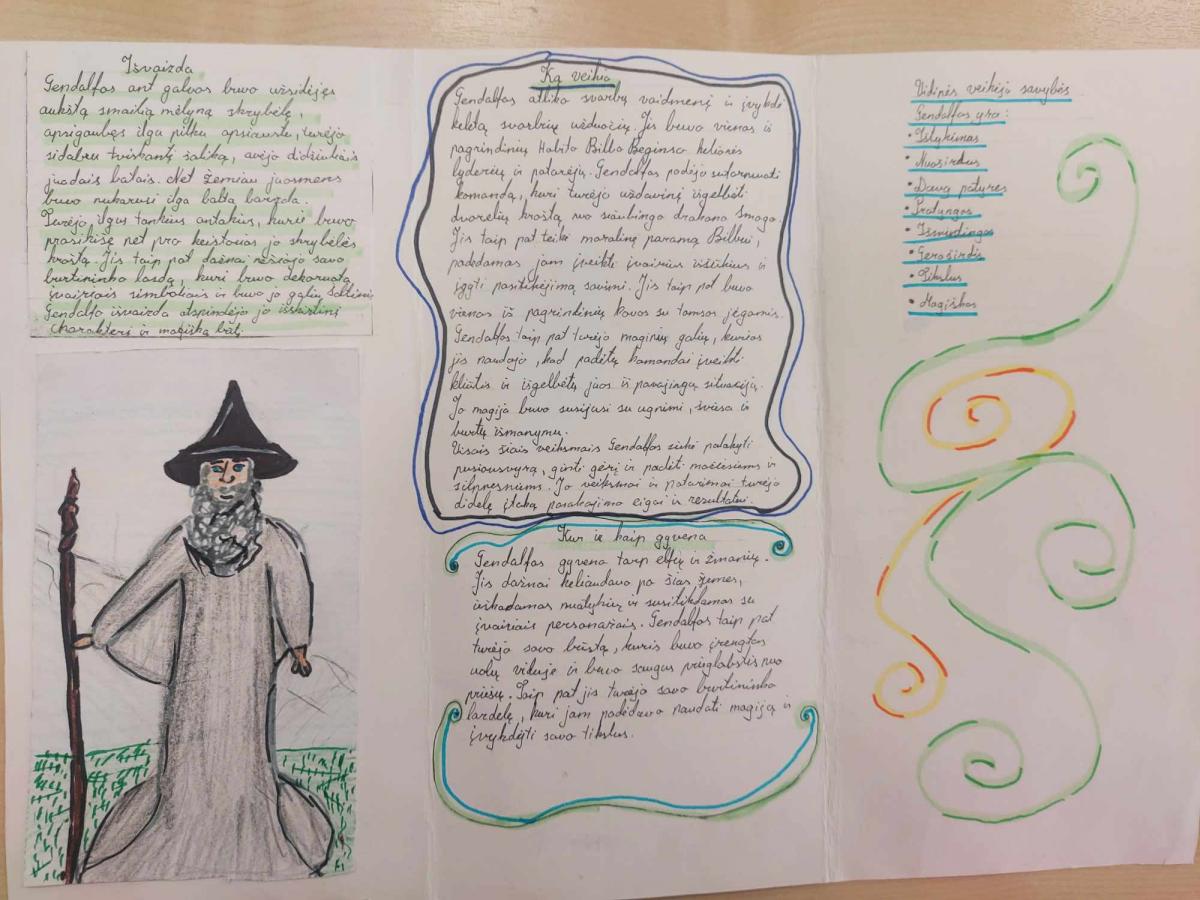 Išvaizda
Gendalfas ant galvos buvo užsidėjęs
aukštą smailią mėlyną skrybėlę,
apsigaubęs ilgu pilku apsiaustu, turėjo
sidabru tviskantį šaliką, avėjo didžiuliais
juodais batais. Net žemiau juosmens
buvo nukarusi ilga balta barzda.
Turėjo ilgus tankius antakius, kurie buvo
prasikišę net pro keistovas jo skrybėlės
kraštą. Jis taip pat dažnai nešiojo savo
burtininko lazdą, kuri buvo dekoruota
įvairiais simboliais ir buvo jo galių šaltiniu
Gendalfo išvaizda atspindėjo jo išskirtinį
charakterį ir magišką būtį.
Ką veikia
Gendalfas atliko svarbų vaidmenį ir įvykdė
keletą svarbių užduočių. Jis buvo vienas iš
pagrindinių Hobito Bilbo Beginso kelionės
lyderių ir patarėjų. Gendalfas padėjo suformuoti
komandą, kuri turėjo uždavinį išgelbėti
dvorelių kraštą nuo siaubingo drakono Smogo.
Jis taip pat teikė moralinę paramą Bilbui,
padėdamas jam įveikti įvairius iššūkius ir
įgyti pasitikėjimą savimi. Jis taip pat buvo
vienas iš pagrindinių kovos su tamsos jėgomis.
Gendalfas taip pat turėjo maginių galių, kurias
jis naudojo, kad padėtų komandai įveikti
kliūtis ir išgelbėtų juos iš pavojingų situacijų.
Jo magija buvo susijusi su ugnimi, šviesa ir
burtų išmanymu.
Visais šiais veiksmais Gendalfas siekė palaikyti
pusiausvyrą, ginti gėrį ir padėti mažesniems ir
silpnesniems. Jo veiksmai ir patarimai turėjo
didelę įtaką pasakojimo eigai ir rezultatui.
Kur ir kaip gyvena
Gendalfas gyveno tarp elfų ir žmonių.
Jis dažnai keliaudavo po šias žemes,
ieškodamas nuotykių ir susitikdamas su
įvairiais personažais. Gendalfas taip pat
turėjo savo būstą, kuris buvo įrengtas
uolų viduje ir buvo saugus prieglobstis nuo
priešų. Taip pat jis turėjo savo burtininko
lazdelę, kuri jam padėdavo naudoti magiją ir
įvykdyti savo tikslus.
Vidinės veikėjo savybės
Gendalfas yra:
• Ištikimas
• Nuoširdus
• Daug patyręs
• Įžvalgus
• Išmintingas
• Geraširdis
• Tikslus
• Magiškas